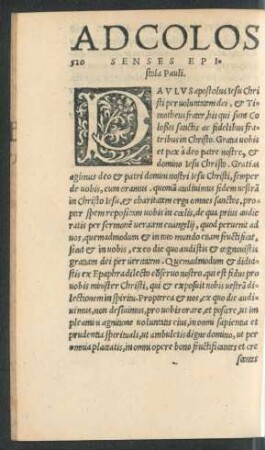 AD COLOS
520 SENSES EPI-
stola Pauli.
PAVLVS apostolus Iesu Chri
sti per voluntatem dei, & Ti
motheus frater, his qui sunt Co
lossis sanctis ac fidelibus fra
tribus in Christo. Gratia uobis
et pax à deo patre nostro, &
domino Iesu Christo. Gratias
agimus deo & patri domini nostri Iesu Christi, semper
de uobis, cum oramus. quoniã audiuimus fidem uestrã
in Christo Iesu, & charitatem erga omnes sanctos, pro
pter spem repositam uobis in cœlis, de qua prius audie
ratis per sermonẽ ueracem euangelij, quod peruenit ad
uos, quemadmodum & in uniuersum mundo etiam fructificat,
sicut & in uobis, ex eo die quo audistis & cognouistis
gratiam dei per ueritatem. Quemadmodum & didici-
stis ex Epaphra dilecto cõseruo nostro, qui est fidus pro
uobis minister Christi, qui & exposuit nobis uestrã di
lectionem in spiritu. Propterea & nos, ex quo die audi
uimus, non desinimus, pro uobis orare, et petere, ut im
pleamini agnitione uoluntatis eius, in omni sapientia et
prudentia spirituali, ut ambuletis digne domino, ut per
omnia placeatis, in omni opere bono fructificantes et cre
scentes